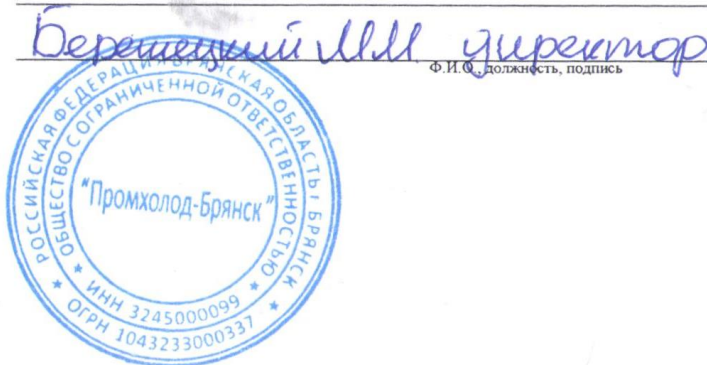 Берешецкий ММ директор
Ф.И.О., должность, подпись
РОССИЙСКАЯ ФЕДЕРАЦИЯ БРЯНСКАЯ ОБЛАСТЬ г БРЯНСК
ОБЩЕСТВО С ОГРАНИЧЕННОЙ ОТВЕТСТВЕННОСТЬЮ
"Промхолод-Брянск"
* ИНН 3245000099 *
* ОГРН 1043233000337 *